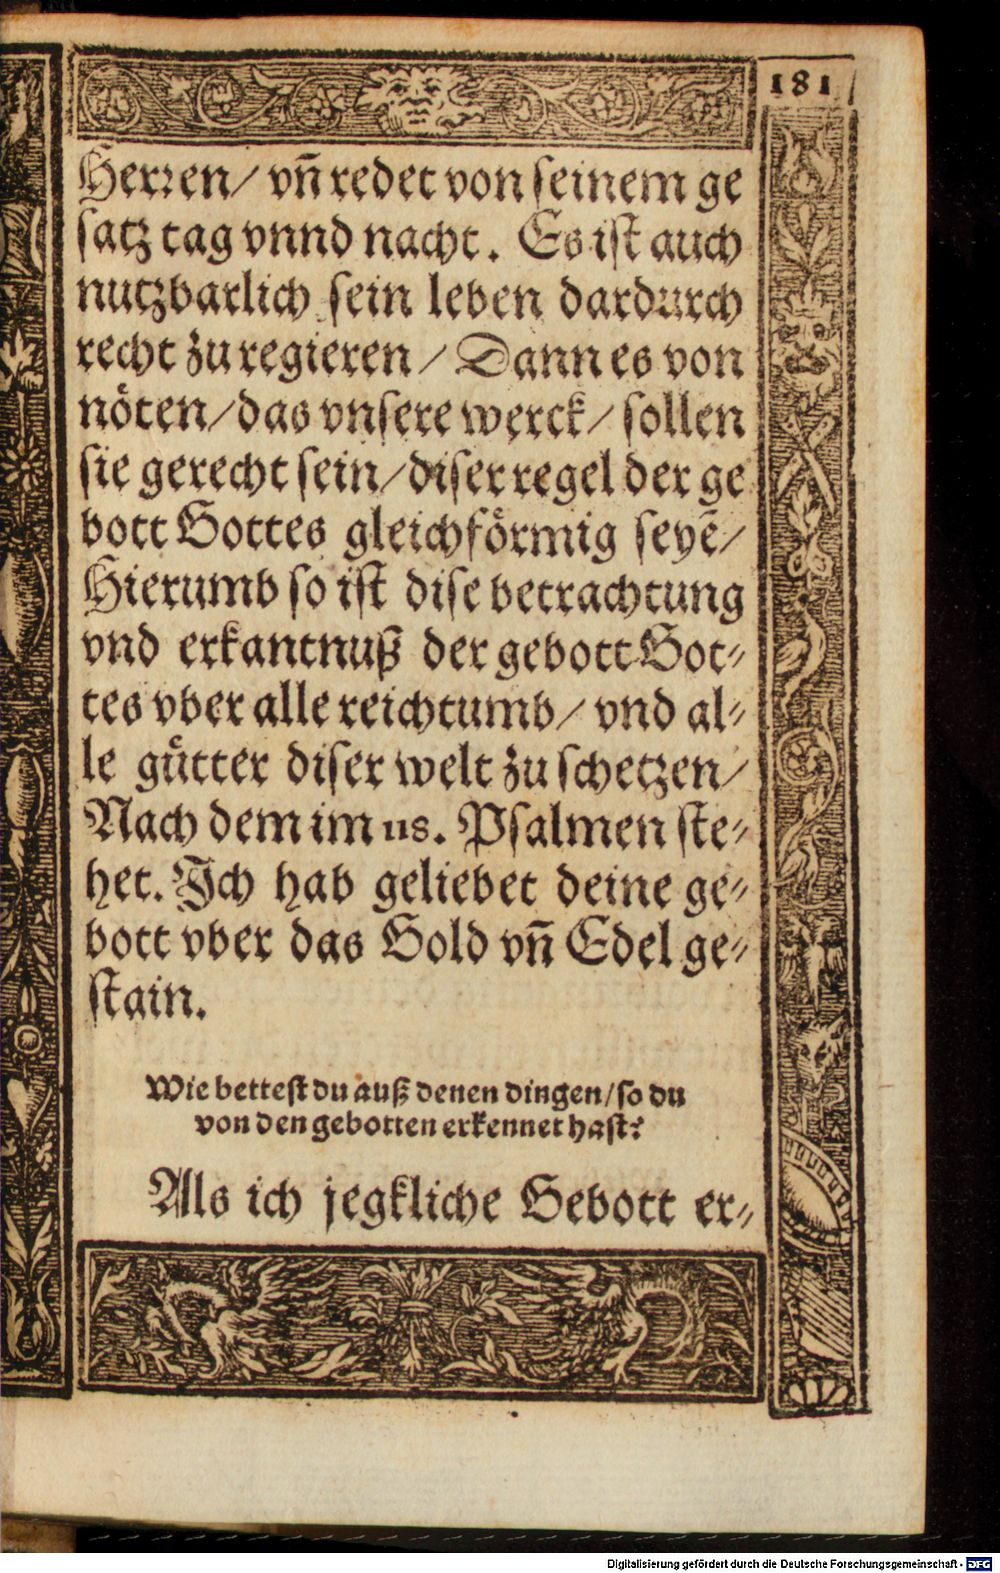 181
Herren/ vñ redet von seinem ge
satz tag vnnd nacht. Es ist auch
nutzbarlich sein leben dardurch
recht zu regieren/ Dann es von
nöten/ das vnsere werck/ sollen
sie gerecht sein/ diser regel der ge
bott Gottes gleichförmig seyē/
Hierumb so ist dise betrachtung
vnd erkantnuß der gebott Got⸗
tes vber alle reichtumb/ vnd al⸗
le guͤtter diser welt zu schetzen/
Nach dem im 118. Psalmen ste⸗
het. Ich hab geliebet deine ge⸗
bott vber das Gold vñ Edel ge⸗
stain.
Wie bettest du auß denen dingen/ so du
von den gebotten erkennet hast?
Als ich jegkliche Gebott er⸗
Digitalisierung gefördert durch die Deutsche Forschungsgemeinschaft - DFG